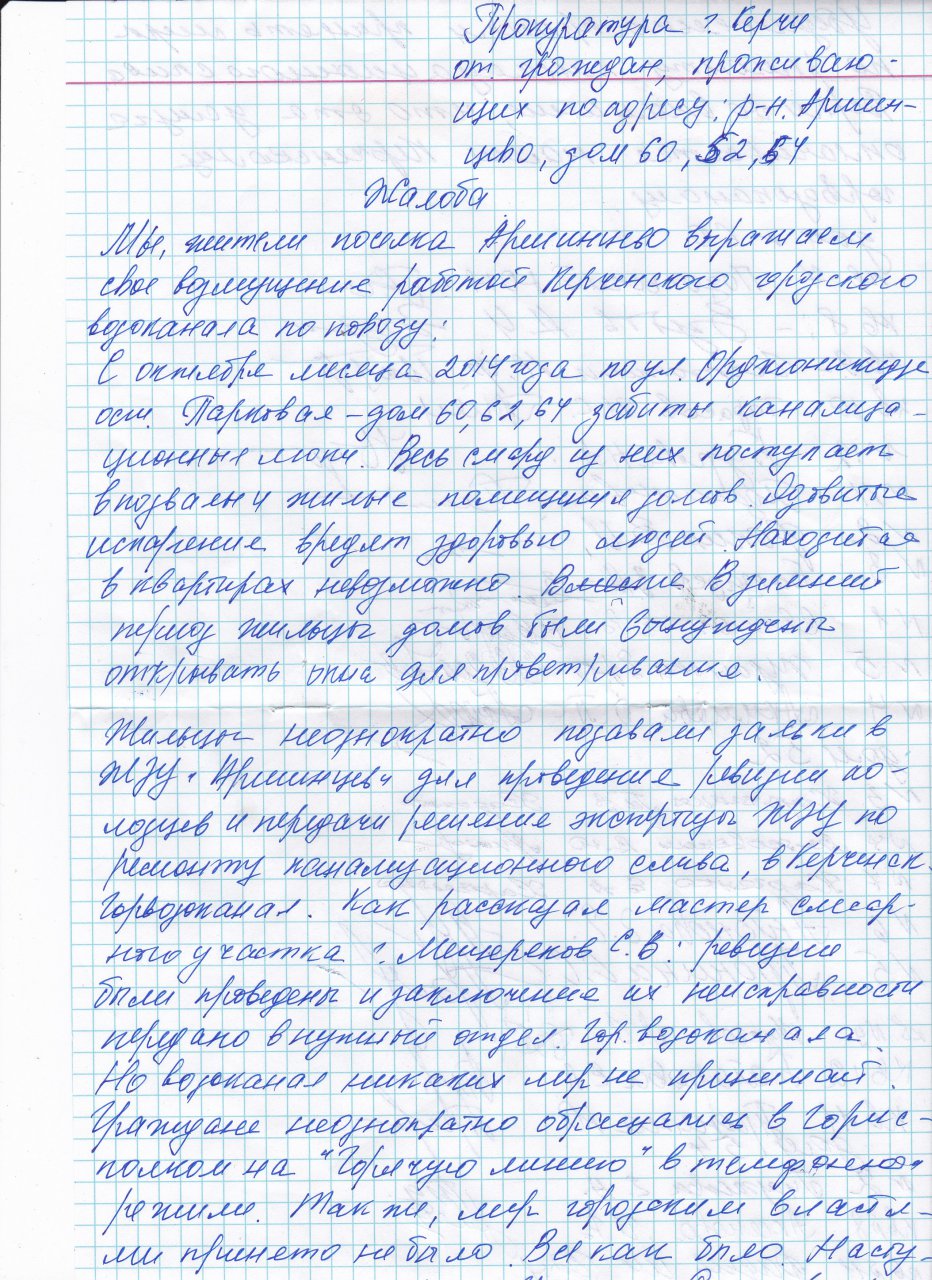 Прокуратура г. Керчи
от граждан, проживаю-
щих по адресу: р-н. Аршин-
цево, дом 60, 62, 64
Жалоба
Мы, жители поселка Аршинцево выражаем
свое возмущение работой Керченского городского
водоканала по поводу:
С октября месяца 2014 года по ул. Орджоникидзе
ост. Парковая – дом 60, 62, 64 забиты канализа-
ционные люки. Весь смрад из них поступает
в подвалы и жилые помещения домов. Ядовитые
испарение вредят здоровью людей. Находится
в квартирах невозможно. В зимний
период жильцы домов были вынуждены
открывать окна для проветривания.
Жильцы неоднократно подавали заявки в
ЖЭУ "Аршинцев" для проведение ревизии ко-
лодцев и передачи решение экспертизы ЖЭУ по
ремонту канализационного слива, в Керченск.
Горводоканал. Как рассказал мастер слесар-
ного участка г. Мещеряков С.В: ревизии
были проведены и заключение их неисправности
передано в нужный отдел. Гор. водоканала.
Но водоканал никаких мер не принимает.
Граждане неоднократно обращались в Горис-
полком на "Горячую линию" в телефонном
режиме. Так же, мер городским властя-
ми принято не было. Всё как было. Насту-